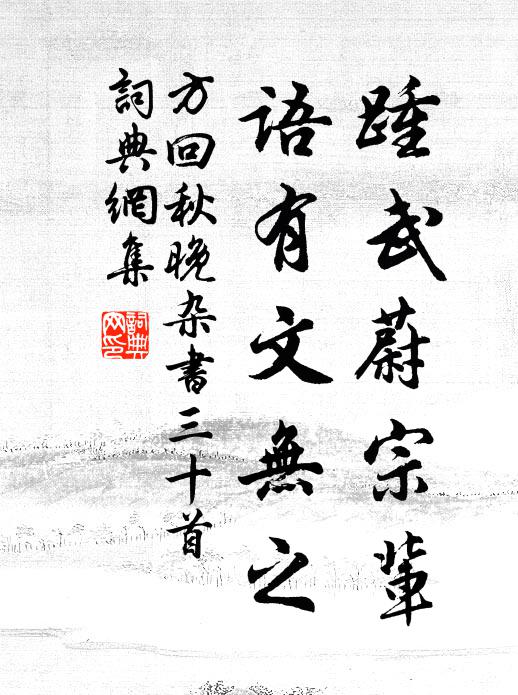 踵武蔚宗輩
語有文無之
方回秋晚杂書三十首
詞典網集
詞典網印